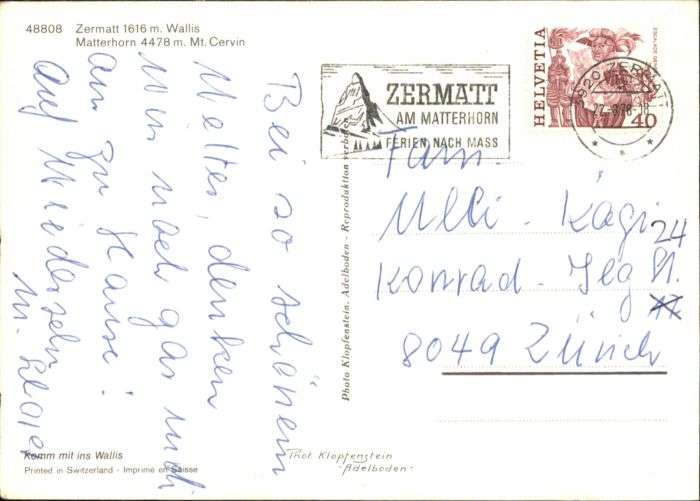 48808 Zermatt 1616 m. Wallis
Matterhorn 4478 m. Mt. Cervin
Bei so schönem
Wetter, denken
wir noch gar nicht
an zu Hause!
Auf Wiedersehn
Komm mit ins Wallis
Printed in Switzerland - Imprimé en Suisse
Photo Klopfenstein, Adelboden - Reproduktion verboten
Phot. Klopfenstein
"Adelboden"
ZERMATT
AM MATTERHORN
FERIEN NACH MASS
3920 ZERMATT
HELVETIA
ESCALADE
40
Fam.
Ulli - Kägi
24
Konrad - Ilg St.
8049 Zürich